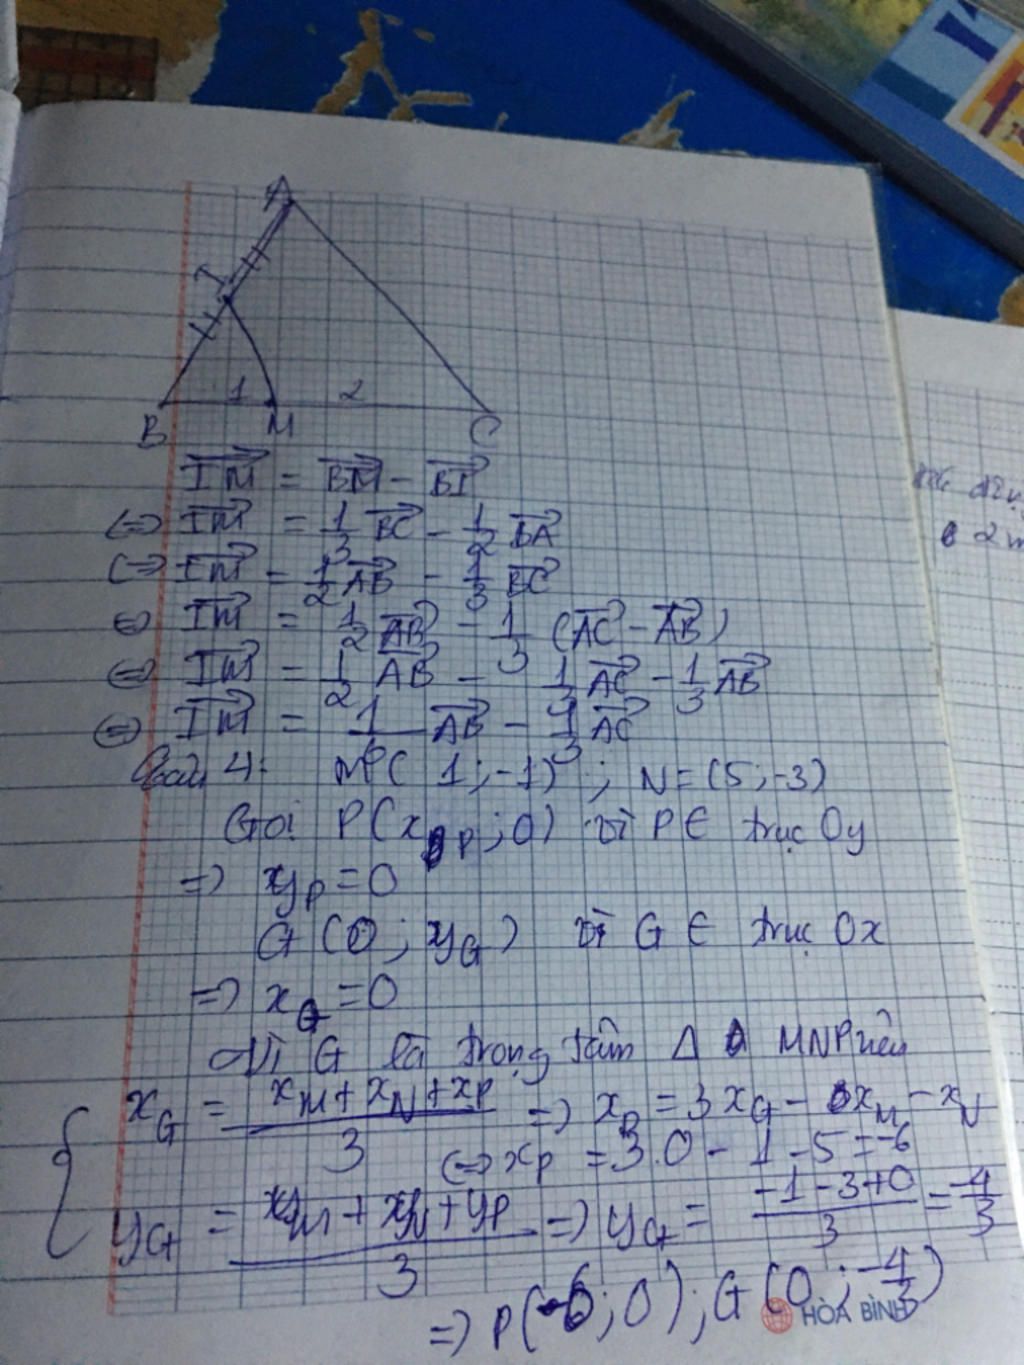 A
I
1
2
B M C
$\overrightarrow{IM} = \overrightarrow{BM} - \overrightarrow{BI}$
$\Leftrightarrow \overrightarrow{IM} = \frac{1}{3}\overrightarrow{BC} - \frac{1}{2}\overrightarrow{BA}$
$\Leftrightarrow \overrightarrow{IM} = \frac{1}{2}\overrightarrow{AB} - \frac{1}{3}\overrightarrow{BC}$
$\Leftrightarrow \overrightarrow{IM} = \frac{1}{2}\overrightarrow{AB} - \frac{1}{3}(\overrightarrow{AC} - \overrightarrow{AB})$
$\Leftrightarrow \overrightarrow{IM} = \frac{1}{2}\overrightarrow{AB} - \frac{1}{3}\overrightarrow{AC} - \frac{1}{3}\overrightarrow{AB}$
$\Leftrightarrow \overrightarrow{IM} = \frac{1}{6}\overrightarrow{AB} - \frac{1}{3}\overrightarrow{AC}$
Bài 4: M(1;-1); N=(5;-3)
Gọi P(x_P;0) vì P∈ trục Oy
=> y_P=0
G(0;y_G) vì G∈ trục Ox
=> x_G=0
Vì G là trọng tâm Δ MNP nên
$x_G = \frac{x_M+x_N+x_P}{3}$ => $x_P = 3x_G - x_M - x_N$
<=> x_P = 3.0 - 1 - 5 = -6
$y_G = \frac{y_M+y_N+y_P}{3}$ => $y_G = \frac{-1-3+0}{3} = \frac{-4}{3}$
=> P(-6;0); G(0; $\frac{-4}{3}$)
HÒA BÌNH